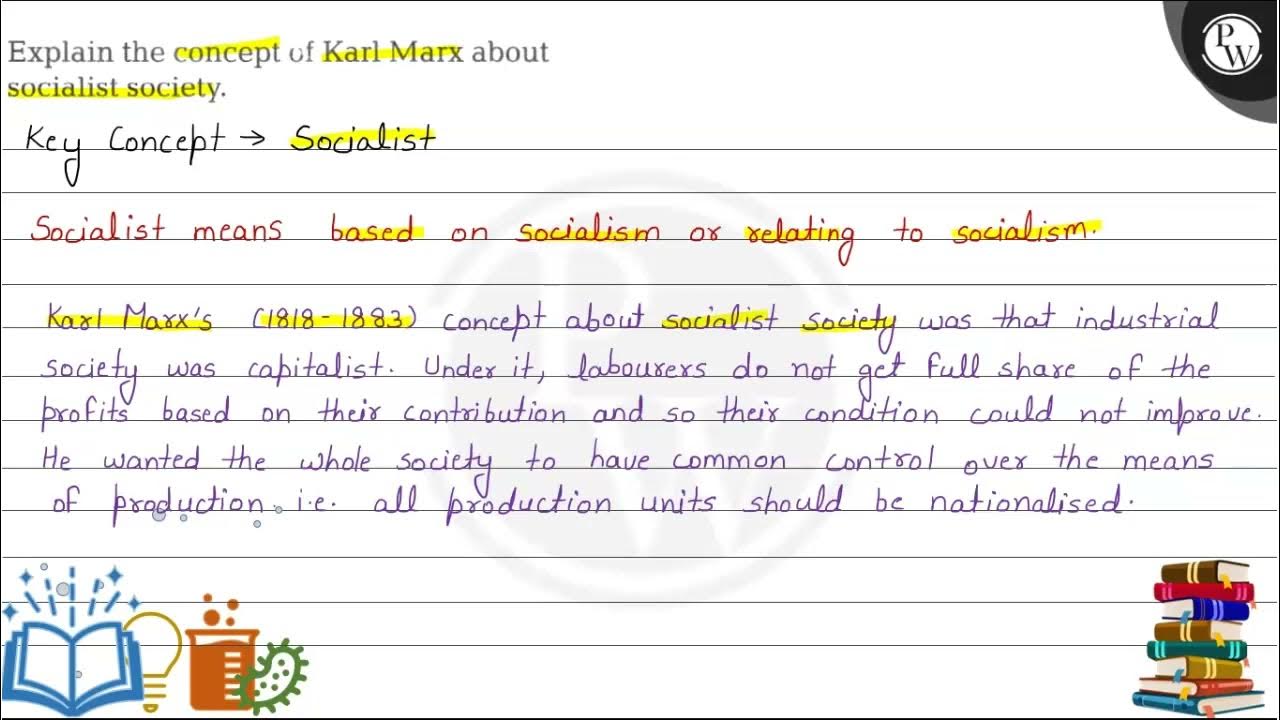 Explain the concept of Karl Marx about
socialist society.
PW
Key Concept → Socialist
Socialist means based on socialism or relating to socialism.
Karl Marx's (1818-1883) concept about socialist society was that industrial
society was capitalist. Under it, labourers do not get full share of the
profits based on their contribution and so their condition could not improve.
He wanted the whole society to have common control over the means
of production i.e. all production units should be nationalised.